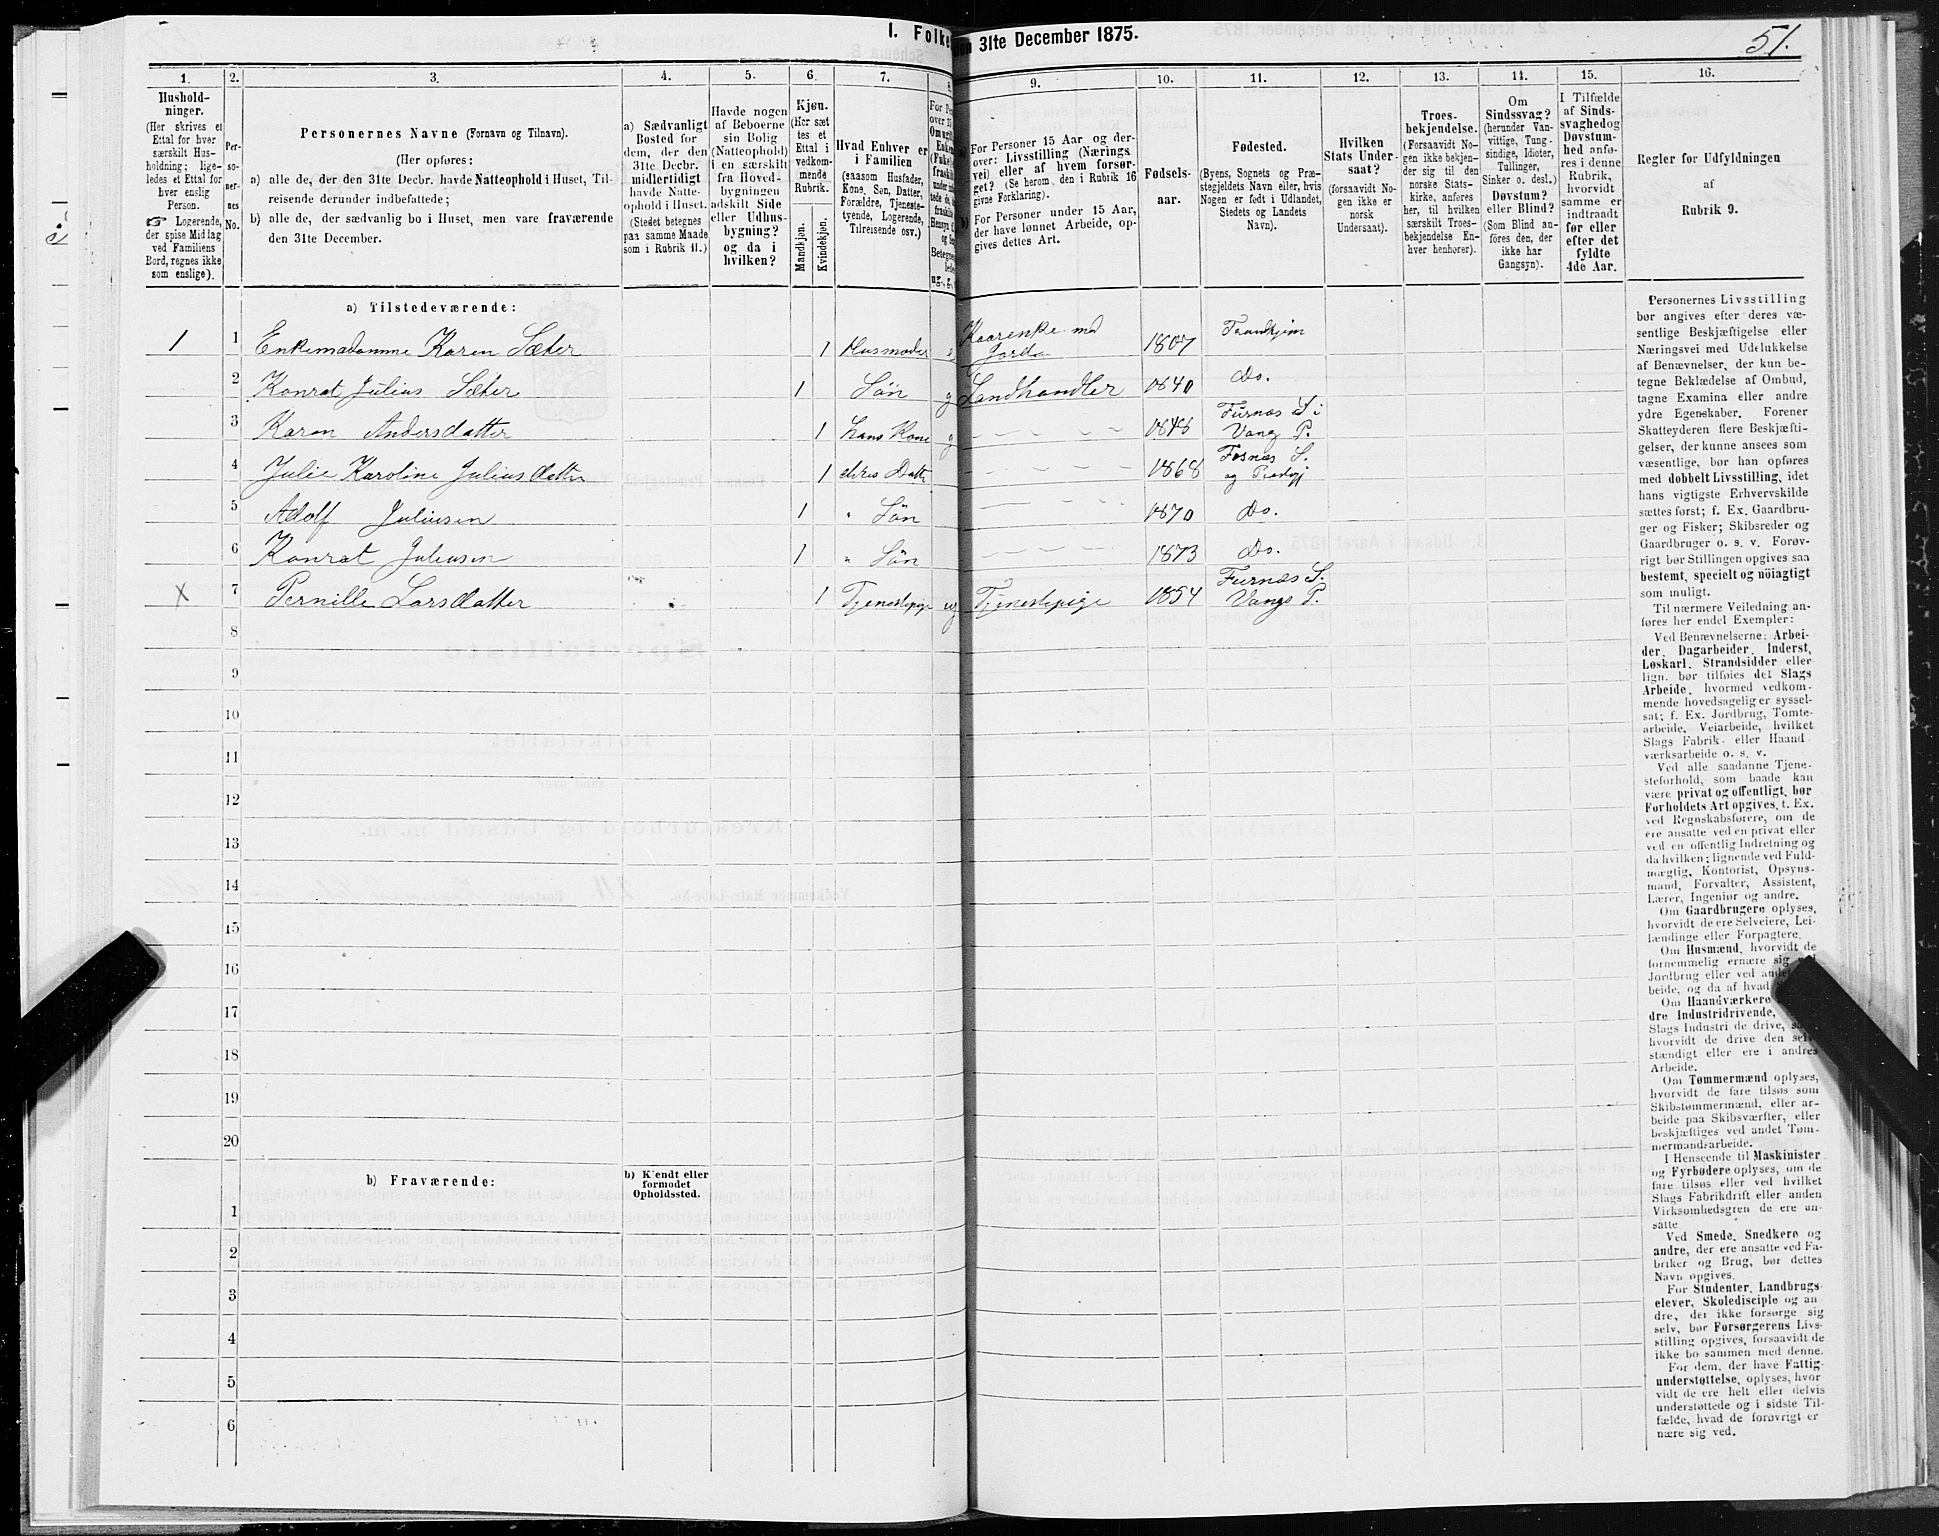 I. Folke
en 31te December 1875.
51.
1.
2.
3.
4.
5.
6.
7.
8
9.
10.
11.
12.
13.
14.
15.
16.
Hushold-
ninger.
(Her skrives et
Ettal for hver
særskilt Hus-
holdning; lige-
ledes et Ettal for
hver enslig
Person.
☞ Logerende,
der spise Middag
ved Familiens
Bord, regnes ikke
som enslige).
Per-
so-
ner-
nes
No.
Personernes Navne (Fornavn og Tilnavn).
(Her opføres:
a) alle de, der den 31te Decbr. havde Natteophold i Huset, Til-
reisende derunder indbefattede;
b) alle de, der sædvanlig bo i Huset, men vare fraværende
den 31te December.
a) Sædvanligt
Bosted for
dem, der den
31te Decbr.
midlertidigt
havde Natte-
ophold i Huset.
(Stedet betegnes
paa samme Maade
som i Rubrik 11.)
Havde nogen
af Beboerne
sin Bolig
(Natteophold)
i en særskilt
fra Hoved-
bygningen
adskilt Side
eller Udhus-
bygning?
og da i
hvilken?
Kjøn.
(Her sæt
tes et
Ettal i
vedkom-
mende
Rubrik.
Mandkjøn.
Kvindekjøn.
Hvad Enhver er
i Familien
(saasom Husfader,
Kone, Søn, Datter,
Forældre, Tjeneste-
tyende, Logerende,
Tilreisende osv.)
a) For Personer 15 Aar og der-
over: Livsstilling (Nærings
vei) eller af hvem forsør-
get? (Se herom, den i Rubrik 16
givne Forklaring).
b) For Personer under 15 Aar,
der have lønnet Arbeide, op-
gives dettes Art.
Fødsels-
aar.
Fødested.
(Byens, Sognets og Præ-
stegjeldets Navn eller, hvis
Nogen er født i Udlandet,
Stedets og Landets
Navn).
Hvilken
Stats Under-
saat?
(forsaavidt No-
gen ikke er
norsk
Undersaat).
Troes-
bekjendelse.
(Forsaavidt No-
gen ikke bekjen-
der sig til den
norske Stats-
kirke, anføres
her, til hvilken
særskilt Troes-
bekjendelse En-
hver henhører).
Om
Sindssvag?
(herunder Van-
vittige, Tung-
sindige, Idioter,
Tullinger,
Sinker o. desl.)
Døvstum?
eller Blind?
(Som Blind an-
føres den, der
ikke har
Gangsyn).
I Tilfælde
af Sinds-
svaghed og
Døvstum-
hed anfø-
res i denne
Rubrik,
hvorvidt
samme er
indtraadt
før eller
efter det
fyldte
4de Aar.
Regler for Udfyldningen
af
Rubrik 9.
a) Tilstedeværende:
1 1 Enkemadamme Karen Sæter 1 Husmoder e Kaarenke med Jord 1807 Trondhjem
2 Konrat Julius Sæter 1 Sön g Landhandler 1840 Do.
3 Karen Andersdatter 1 hans Kone g 1848 Furnæs S. i Vang P.
4 Julie Karoline Juliusdatter 1 deres Datt 1868 Fosnæs S. og Prædgj
5 Adolf Juliusen 1 " Sön 1870 Do.
6 Konrat Juliusen 1 " Sön 1873 Do.
X 7 Pernille Larsdatter 1 Tjenestepige ug Tjenestepige 1854 Furnæs S. Vangs P.
8
9
10
11
12
13
14
15
16
17
18
19
20
b) Fraværende:
b) Kjendt eller
formodet
Opholdssted.
1
2
3
4
5
6
Personernes Livsstilling
bør angives efter deres væ-
sentlige Beskjæftigelse eller
Næringsvei med Udelukkelse
af Benævnelser, der kun be-
tegne Beklædelse af Ombud,
tagne Examina eller andre
ydre Egenskaber. Forener
Skatteyderen flere Beskjæfti-
gelser, der kunne ansees som
væsentlige, bør han opføres
med dobbelt Livsstilling, idet
hans vigtigste Erhvervskilde
sættes først; f. Ex. Gaardbru-
ger og Fisker; Skibsreder og
Gaardbruger o. s. v. Forøv-
rigt bør Stillingen opgives saa
bestemt, specielt og nöiagtigt
som muligt.
Til nærmere Veiledning an-
føres her endel Exempler:
Ved Benævnelserne: Arbei-
der, Dagarbeider, Inderst,
Løskarl, Strandsidder eller
lign. bør tilføies det Slags
Arbeide, hvormed vedkom-
mende hovedsagelig er syssel-
sat; f. Ex. Jordbrug, Tomte-
arbeide, Veiarbeide, hvilket
Slags Fabrik- eller Haand-
værksarbeide o. s. v.
Ved alle saadanne Tjene-
steforhold, som baade kan
være privat og offentligt, bør
Forholdets Art opgives, t. Ex.
ved Regnskabsførere, om de
ere ansatte ved en privat eller
ved en offentlig Indretning og
da hvilken; lignende ved Fuld-
mægtig, Kontorist, Opsyns-
mand, Forvalter, Assistent,
Lærer, Ingeniør og andre.
Om Gaardbrugere oplyses,
hvorvidt de ere Selveiere, Lei-
lændinge eller Forpagtere.
Om Husmænd, hvorvidt de
fornemmelig ernære sig
Jordbrug eller ved andet
beide, og da af hvad
Om Haandværkere
dre Industridrivende,
Slags Industri de drive,
hvorvidt de drive den selv
stændigt eller ere i andres
Arbeide.
Om Tømmermænd oplyses,
hvorvidt de fare tilsøs som
Skibstømmermænd, eller ar-
beide paa Skibsværfter, eller
beskjæftiges ved andet Tøm-
mermandsarbeide.
I Henseende til Maskinister
og Fyrbødere oplyses, om de
fare tilsøs eller ved hvilket
Slags Fabrikdrift eller anden
Virksomhedsgren de ere an-
satte
Ved Smede, Snedkere og
andre, der ere ansatte ved Fa-
briker og Brug, bør dettes
Navn opgives.
For Studenter, Landbrugs-
elever, Skoledisciple og an-
dre, der ikke forsørge sig
selv, bør Forsørgerens Livs-
stilling opgives, forsaavidt de
ikke bo sammen med denne.
For dem, der have Fattig-
understøttelse, oplyses, hvor
vidt de ere helt eller delvis
understøttede og i sidste Til-
fælde, hvad de forøvrigt er
nære sig ved.